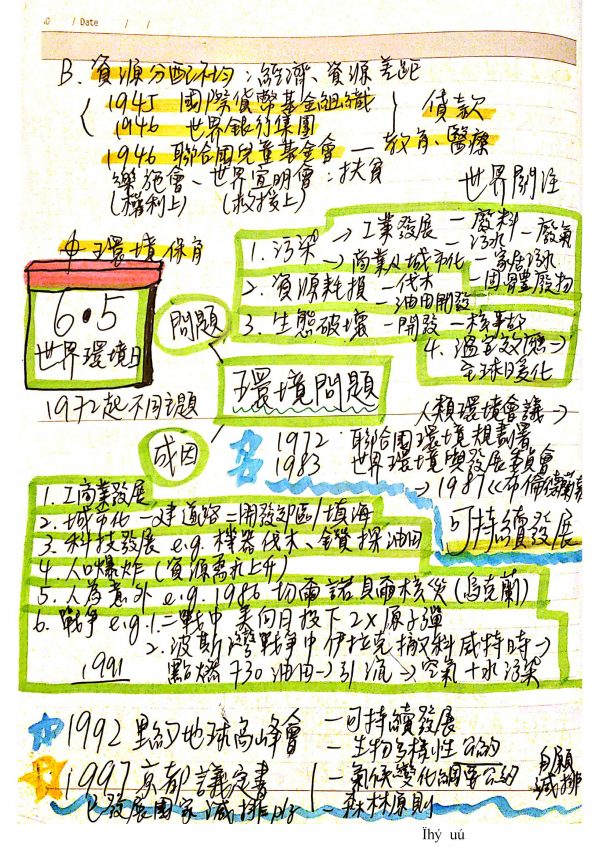 / Date / /
B. 資源分配不均：經濟、資源差距
1945 國際貨幣基金組織
1946 世界銀行集團
} 債款
1946 聯合國兒童基金會 — 教育、醫療
樂施會、世界宣明會：扶貧
(權利上) (救援上)
世界關注
環境保育
6.5
世界環境日
1972起不同主題
問題
1. 污染 → 工業發展 — 廢料 — 污水 — 廢氣
→ 商業及城市化 — 家居污水 — 固體廢物
2. 資源耗損 — 伐木
— 油田開發
3. 生態破壞 — 開發 — 核事故
4. 溫室效應 →
全球暖化
環境問題
人類環境會議 →
1972 聯合國環境規劃署
1983 世界環境與發展委員會
→ 1987《布倫特蘭
可持續發展
成因
1. 工商業發展
2. 城市化 — 建道路 = 開發郊區/填海
3. 科技發展 e.g. 機器伐木、鑽探油田
4. 人口爆炸 (資源需求上升)
5. 人為意外 e.g. 1986 切爾諾貝爾核災 (烏克蘭)
6. 戰爭 e.g. 1. 二戰中美向日投下2x原子彈
2. 波斯灣戰爭中伊拉克撤科威特時 →
1991 點燃730油田 → 引流 → 空氣+水污染
1992 里約地球高峰會 — 可持續發展
— 生物多樣性公約
1997 京都議定書 — 氣候變化綱要公約
已發展國家減排 — 森林原則
自願
減排
Ïhý uú